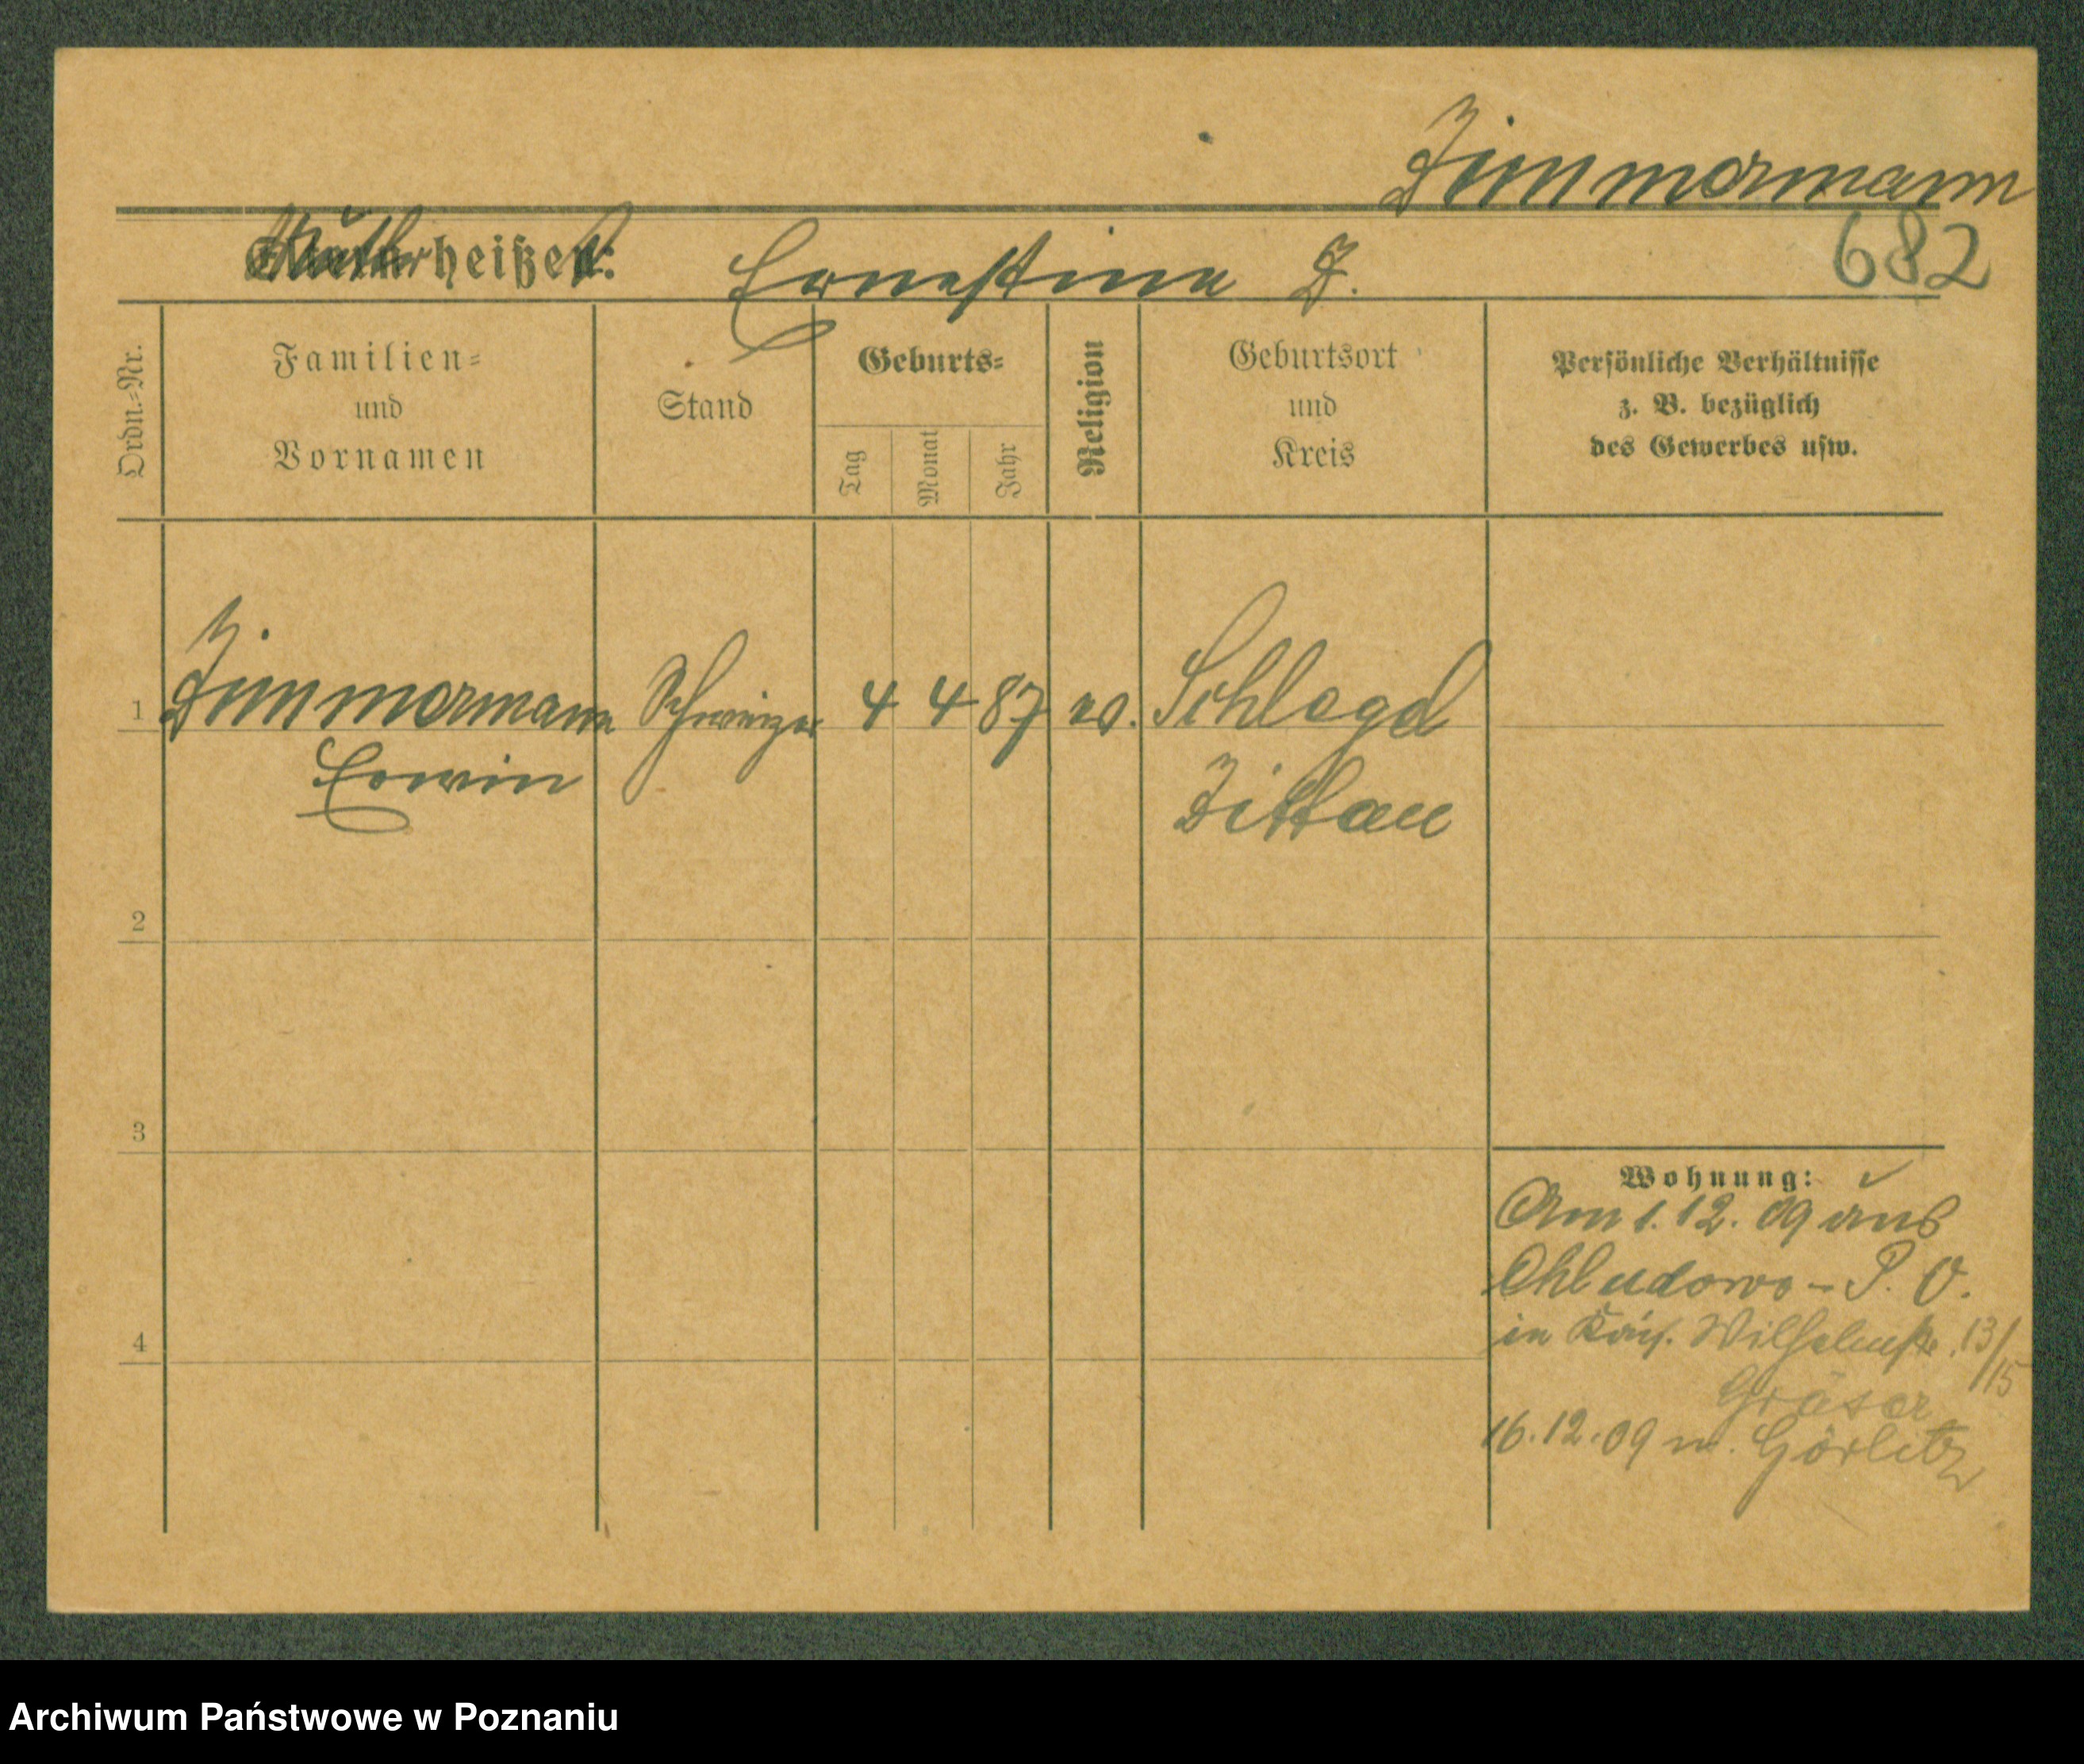 Zimmermann
Mutter heißt: Ernestine Z. 682
Ordn.-Nr.
Familien-
und
Vornamen
Stand
Geburts-
Tag
Monat
Jahr
Religion
Geburtsort
und
Kreis
Persönliche Verhältnisse
z. B. bezüglich
des Gewerbes usw.
1 Zimmermann Schweizer 4 4 87 ev. Schlegel
Erwin Zittau
2
3
4
Wohnung:
Am 1. 12. 09 aus
Chludowo - P. O.
in Kais. Wilhelmstr. 13/15
Gräser
16.12.09 n. Görlitz
Archiwum Państwowe w Poznaniu